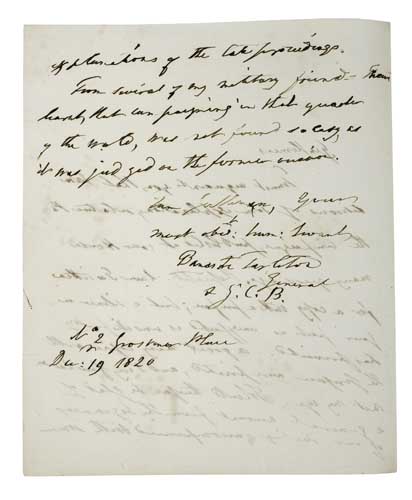 explanations of the late proceedings.
From several of my military friends I have
learnt, that campaigning in that quarter
of the world, was not found so easy, as
it was judged on the former occasion.
Yours
most obed: hum: Servt
Banastre Tarleton
General
& G. C. B.
No 2 Grosvenor Place
Dec: 19 1820